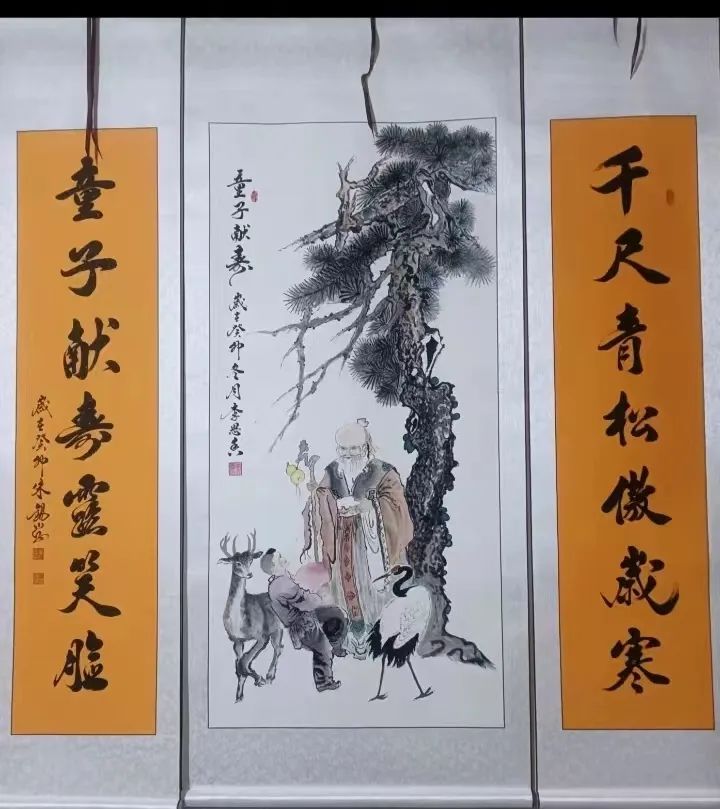 千尺青松傲嵗寒
童子献寿
嵗在癸卯冬月李思
童子献寿露笑脸
嵗在癸卯朱錫